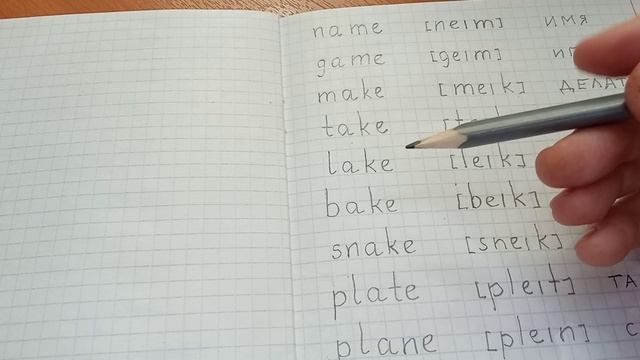 name [neim] имя
game [geim]
make [meik] делат
take
lake [leik]
bake [beik]
snake [sneik]
plate [pleit]
plane [plein]